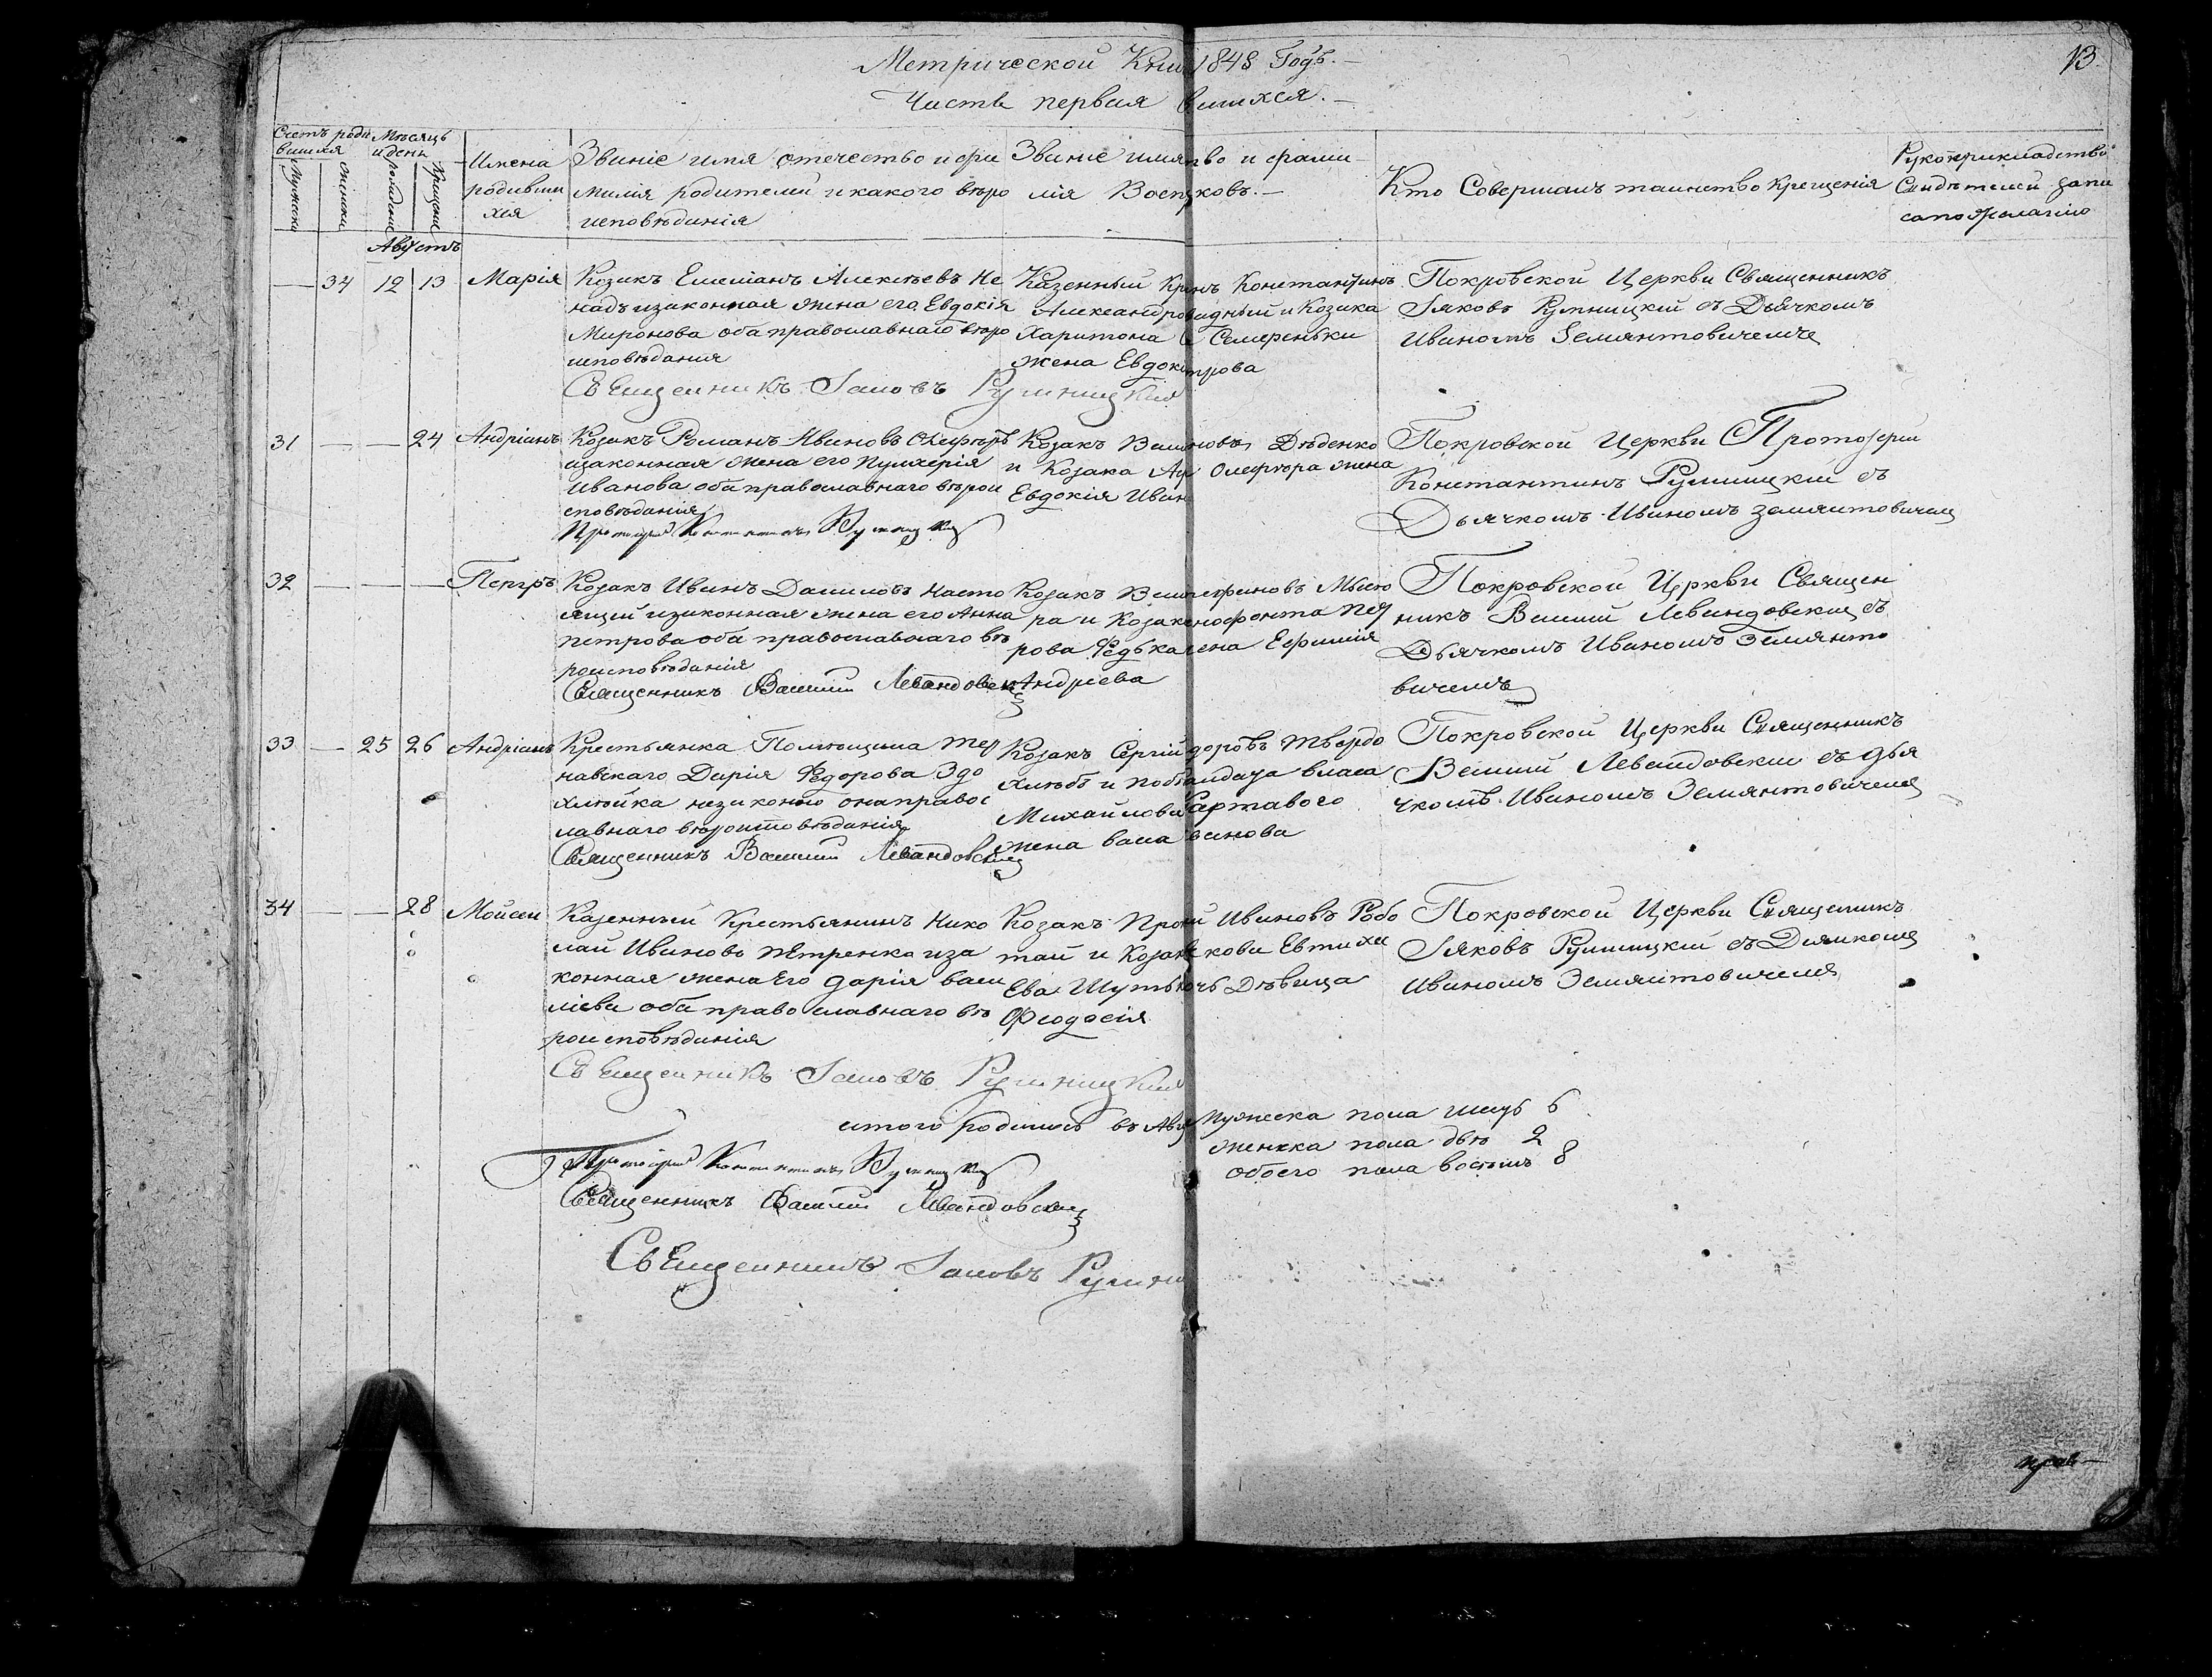 Метрической Кни 1848 Годъ.
13
Часть первая вшихся.
Счетъ роди
вшихся
Мѣсяцъ
и день
Мужеска
Женска
Рожденія
Крещенія
Имена
родивши
хся
Званіе имя отечество и фа
милія родителей и какого вѣро
исповѣданія
Званіе имя тво и фами
лія Воспр ковъ.
Кто Совершалъ таинство Крещенія
Рукоприкладство
Свидѣтелей запи
си по желанію
Августъ
34 12 13 Марія
Козакъ Емеліанъ Алексѣевъ Не
надъ изаконная жена его Евдокія
Миронова оба православнаго вѣро
исповѣдания
Священникъ Іаковъ Румницкій
Казенный Кр нъ Константинъ
Александро дный и Козака
Харитона Семереньки
жена Евдок трова
Покровской Церкви Священникъ
Іяковъ Румницкій съ Дьячкомъ
Иваномъ Земянтовичемъ
31 24 Андріанъ
Козакъ Романъ Ивановъ Олефиръ
изаконная жена его Пулхерія
Иванова оба православнаго вѣрои
сповѣданія
Протоіерей Константинъ Румницкій
Козакъ Васи новъ Дѣденко
и Козака Ан Олефѣра жена
Евдокія Иван
Покровской Церкви Протоіерей
Константинъ Румницкій съ
Дьячкомъ Иваномъ Земянтовичем
32 Петръ
Козакъ Иванъ Даниловъ Насто
ящей изаконная жена его Анна
Петрова оба православнаго вѣ
роисповѣданія
Священникъ Василій Левандовскій
Козакъ Васи фановъ Мьсю
ра и Козак нофонта Пет
рова Федька ена Ефимія
Андріева
Покровской Церкви Священ
никъ Василій Левандовский съ
Дьячкомъ Иваномъ Земянто
вичемъ
33 25 26 Андріанъ
Крестьянка Помѣщика Тер
навскаго Дарія Федорова Здо
хлюйка незаконно онаправос
лавнаго вѣроисповѣданія
Священникъ Василий Левандовский
Козакъ Сергій доровъ Твердо
хлѣбъ и подъ андаза власа
Михайлови артавого
жена васи ванова
Покровской Церкви Священникъ
Василий Левандовский съ дья
чкомъ Иваномъ Земянтовичемъ
34 28 Мойсей
Казенный Крестьянинъ Нико
лай Ивановъ Петренко иза
конная жена Его Дарія Васи
ліева оба православнаго вѣ
роисповѣданія
Священникъ Іаковъ Румницкій
Козакъ Про й Ивановъ Робо
тай и Коза кови Евтихи
Ева Шуть чъ Дѣвица
Феодосія
Покровской Церкви Священикъ
Іяковъ Румницкій съ Дьячкомъ
Иваномъ Земянтовичемъ
итого родилось въ Авг Мужеска пола шесть 6
женска пола двѣ 2
обоего пола восемь 8
Протоіерей Константинъ Румницкій
Священникъ Василий Левандовский
Священникъ Іаковъ Румни